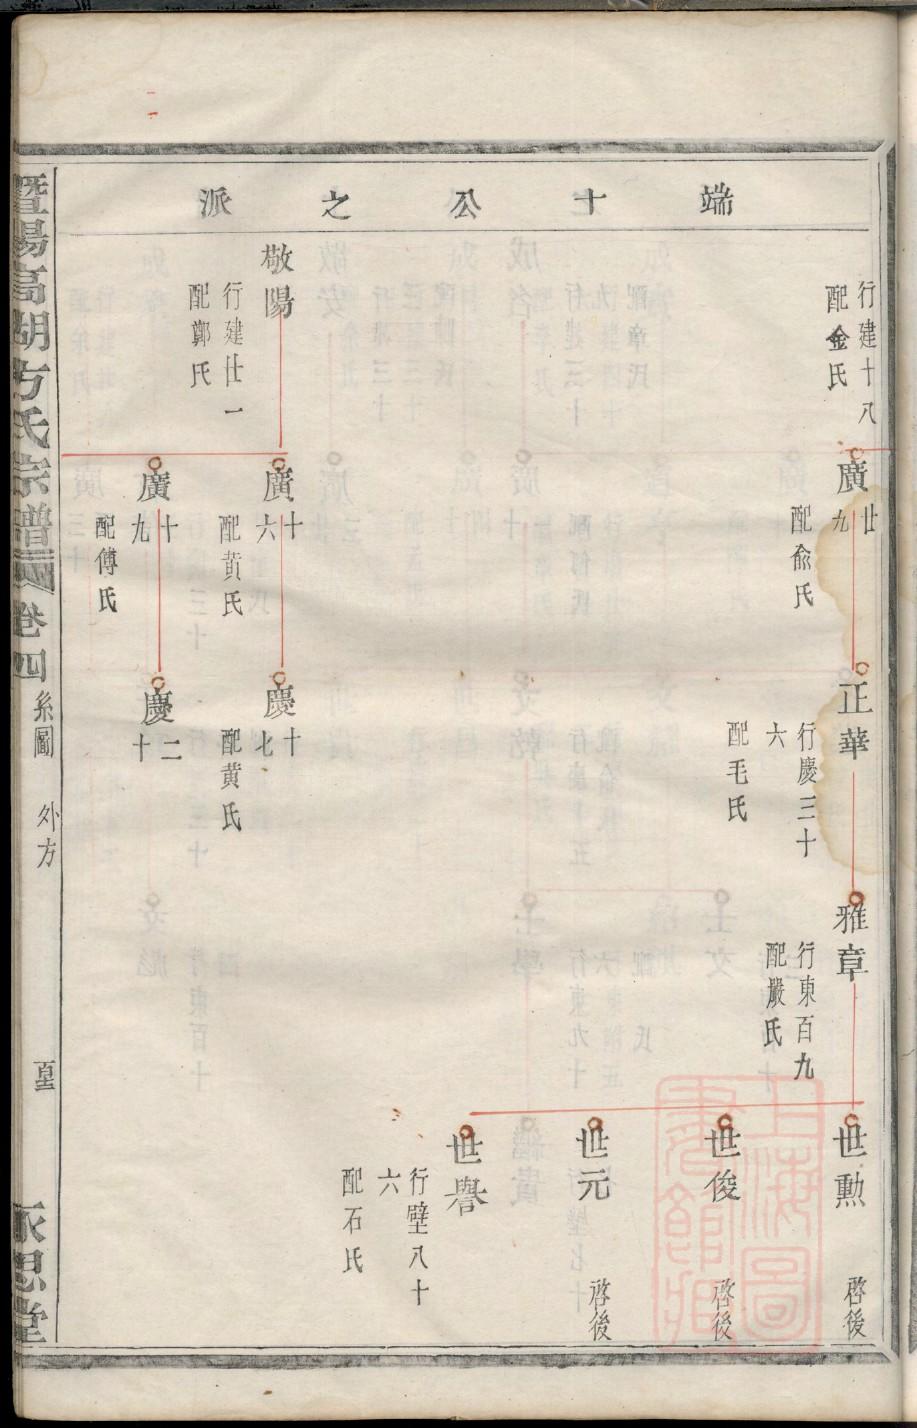 端十公之派
行建十八
配金氏
廣廿九
配俞氏
正華
行慶三十六
配毛氏
雅章
行東百九
配嚴氏
世勲
啓後
世俊
啓後
世元
啓後
世譽
行壁八十六
配石氏
敬陽
行建廿一
配鄭氏
廣十六
配黃氏
慶十七
配黃氏
廣十九
配傅氏
慶二十
暨陽高湖方氏宗譜
卷四
系圖
外方
永思堂
上海圖書館藏